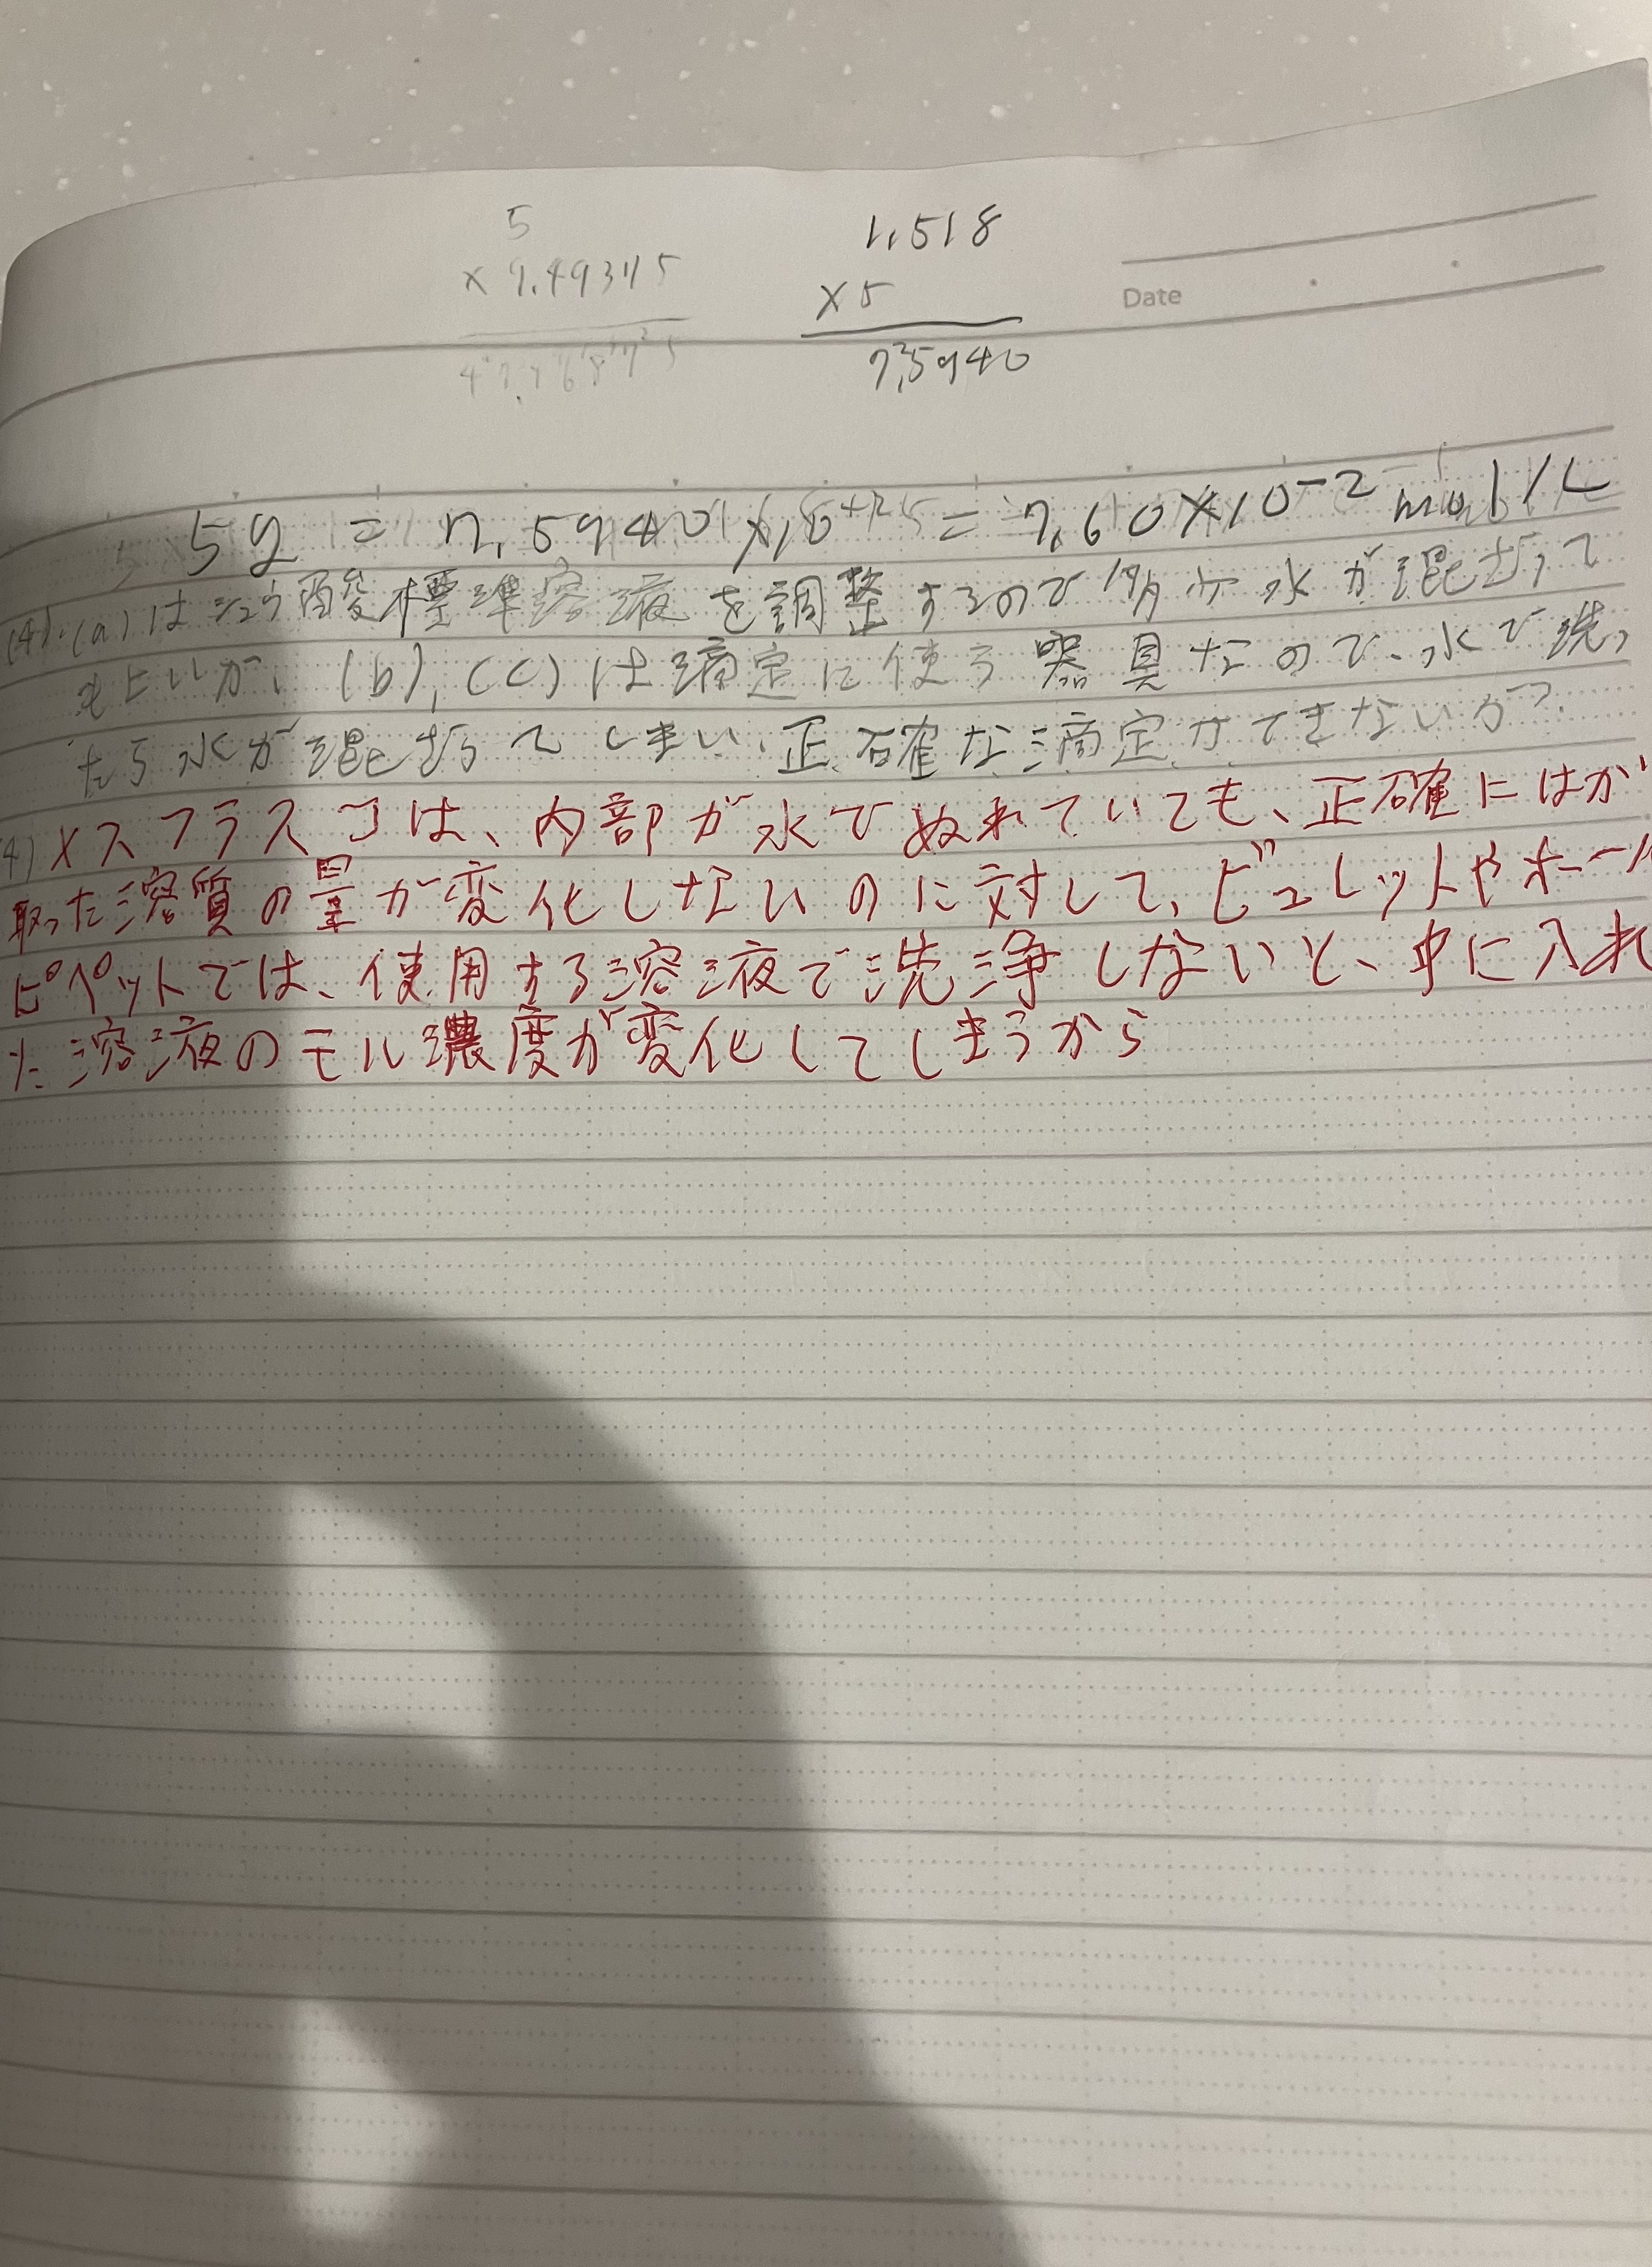 5
× 9.49375
1.518
×5
7.5940
Date
5y = 7.5940 = 7.60×10⁻² mol/L
(4).(a)はシュウ酸標準溶液を調整するので 水が混ざって
もよいが、(b),(c)は滴定に使う器具なので、水で洗っ
たら水が混ざってしまい、正確な滴定ができないから。
4) メスフラスコは、内部が水でぬれていても、正確にはかり
取った溶質の量が変化しないのに対して、ビュレットやホール
ピペットでは、使用する溶液で洗浄しないと、中に入れ
た溶液のモル濃度が変化してしまうから